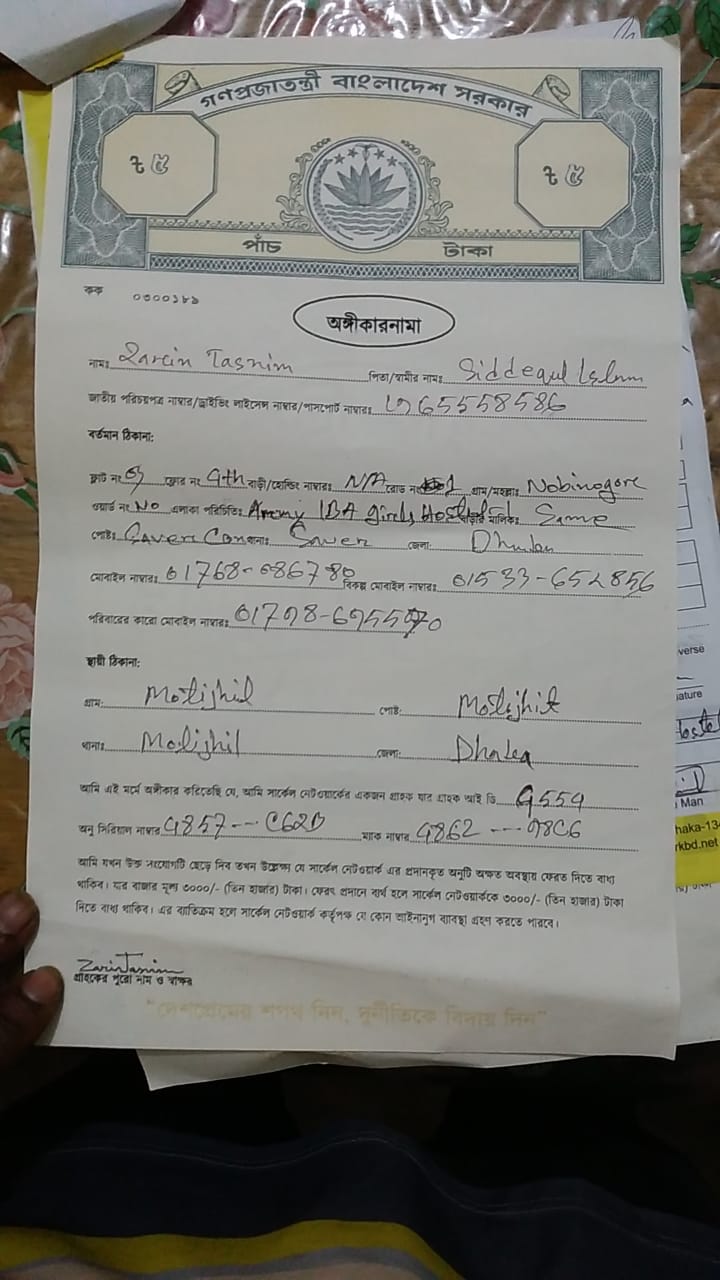 গণপ্রজাতন্ত্রী বাংলাদেশ সরকার
৳ ৫
৳ ৫
পাঁচ টাকা
কক ০৩০০১৮৯
অঙ্গীকারনামা
নামঃ Zarein Tasnim পিতা/স্বামীর নামঃ Siddequl Islam
জাতীয় পরিচয়পত্র নাম্বার/ড্রাইভিং লাইসেন্স নাম্বার/পাসপোর্ট নাম্বারঃ 65558586
বর্তমান ঠিকানা:
ফ্লাট নং ফ্লোর নং 9th বাড়ী/হোল্ডিং নাম্বারঃ N/A রোড নং গ্রাম/মহল্লাঃ Nobinogore
ওয়ার্ড নং No এলাকা পরিচিতিঃ Army IBA girls Hostel বাড়ীর মালিকঃ Same
পোষ্টঃ Saver Can থানাঃ Saver জেলা:
মোবাইল নাম্বারঃ 01768-086780 বিকল্প মোবাইল নাম্বারঃ 01533-652856
পরিবারের কারো মোবাইল নাম্বারঃ
স্থায়ী ঠিকানা:
গ্রাম: Motijhil পোষ্ট: Motijhil
থানাঃ Motijhil জেলা: Dhaka
আমি এই মর্মে অঙ্গীকার করিতেছি যে, আমি সার্কেল নেটওয়ার্কের একজন গ্রাহক যার গ্রাহক আই ডি 9559
অনু সিরিয়াল নাম্বার 9857---C62D ম্যাক নাম্বার 9862---98C6
আমি যখন উক্ত সংযোগটি ছেড়ে দিব তখন উল্লেক্ষ্য যে সার্কেল নেটওয়ার্ক এর প্রদানকৃত অনুটি অক্ষত অবস্থায় ফেরত দিতে বাধ্য
থাকিব। যার বাজার মূল্য ৩০০০/- (তিন হাজার) টাকা। ফেরৎ প্রদানে ব্যর্থ হলে সার্কেল নেটওয়ার্ককে ৩০০০/- (তিন হাজার) টাকা
দিতে বাধ্য থাকিব। এর ব্যতিক্রম হলে সার্কেল নেটওয়ার্ক কর্তৃপক্ষ যে কোন আইনানুগ ব্যবস্থা গ্রহণ করতে পারবে।
Zarin Tasnim
গ্রাহকের পুরো নাম ও স্বাক্ষর
"দেশপ্রেমের শপথ নিন, দুর্নীতিকে বিদায় দিন"
verse
ature
Hostel
Man
haka-134
rkbd.net